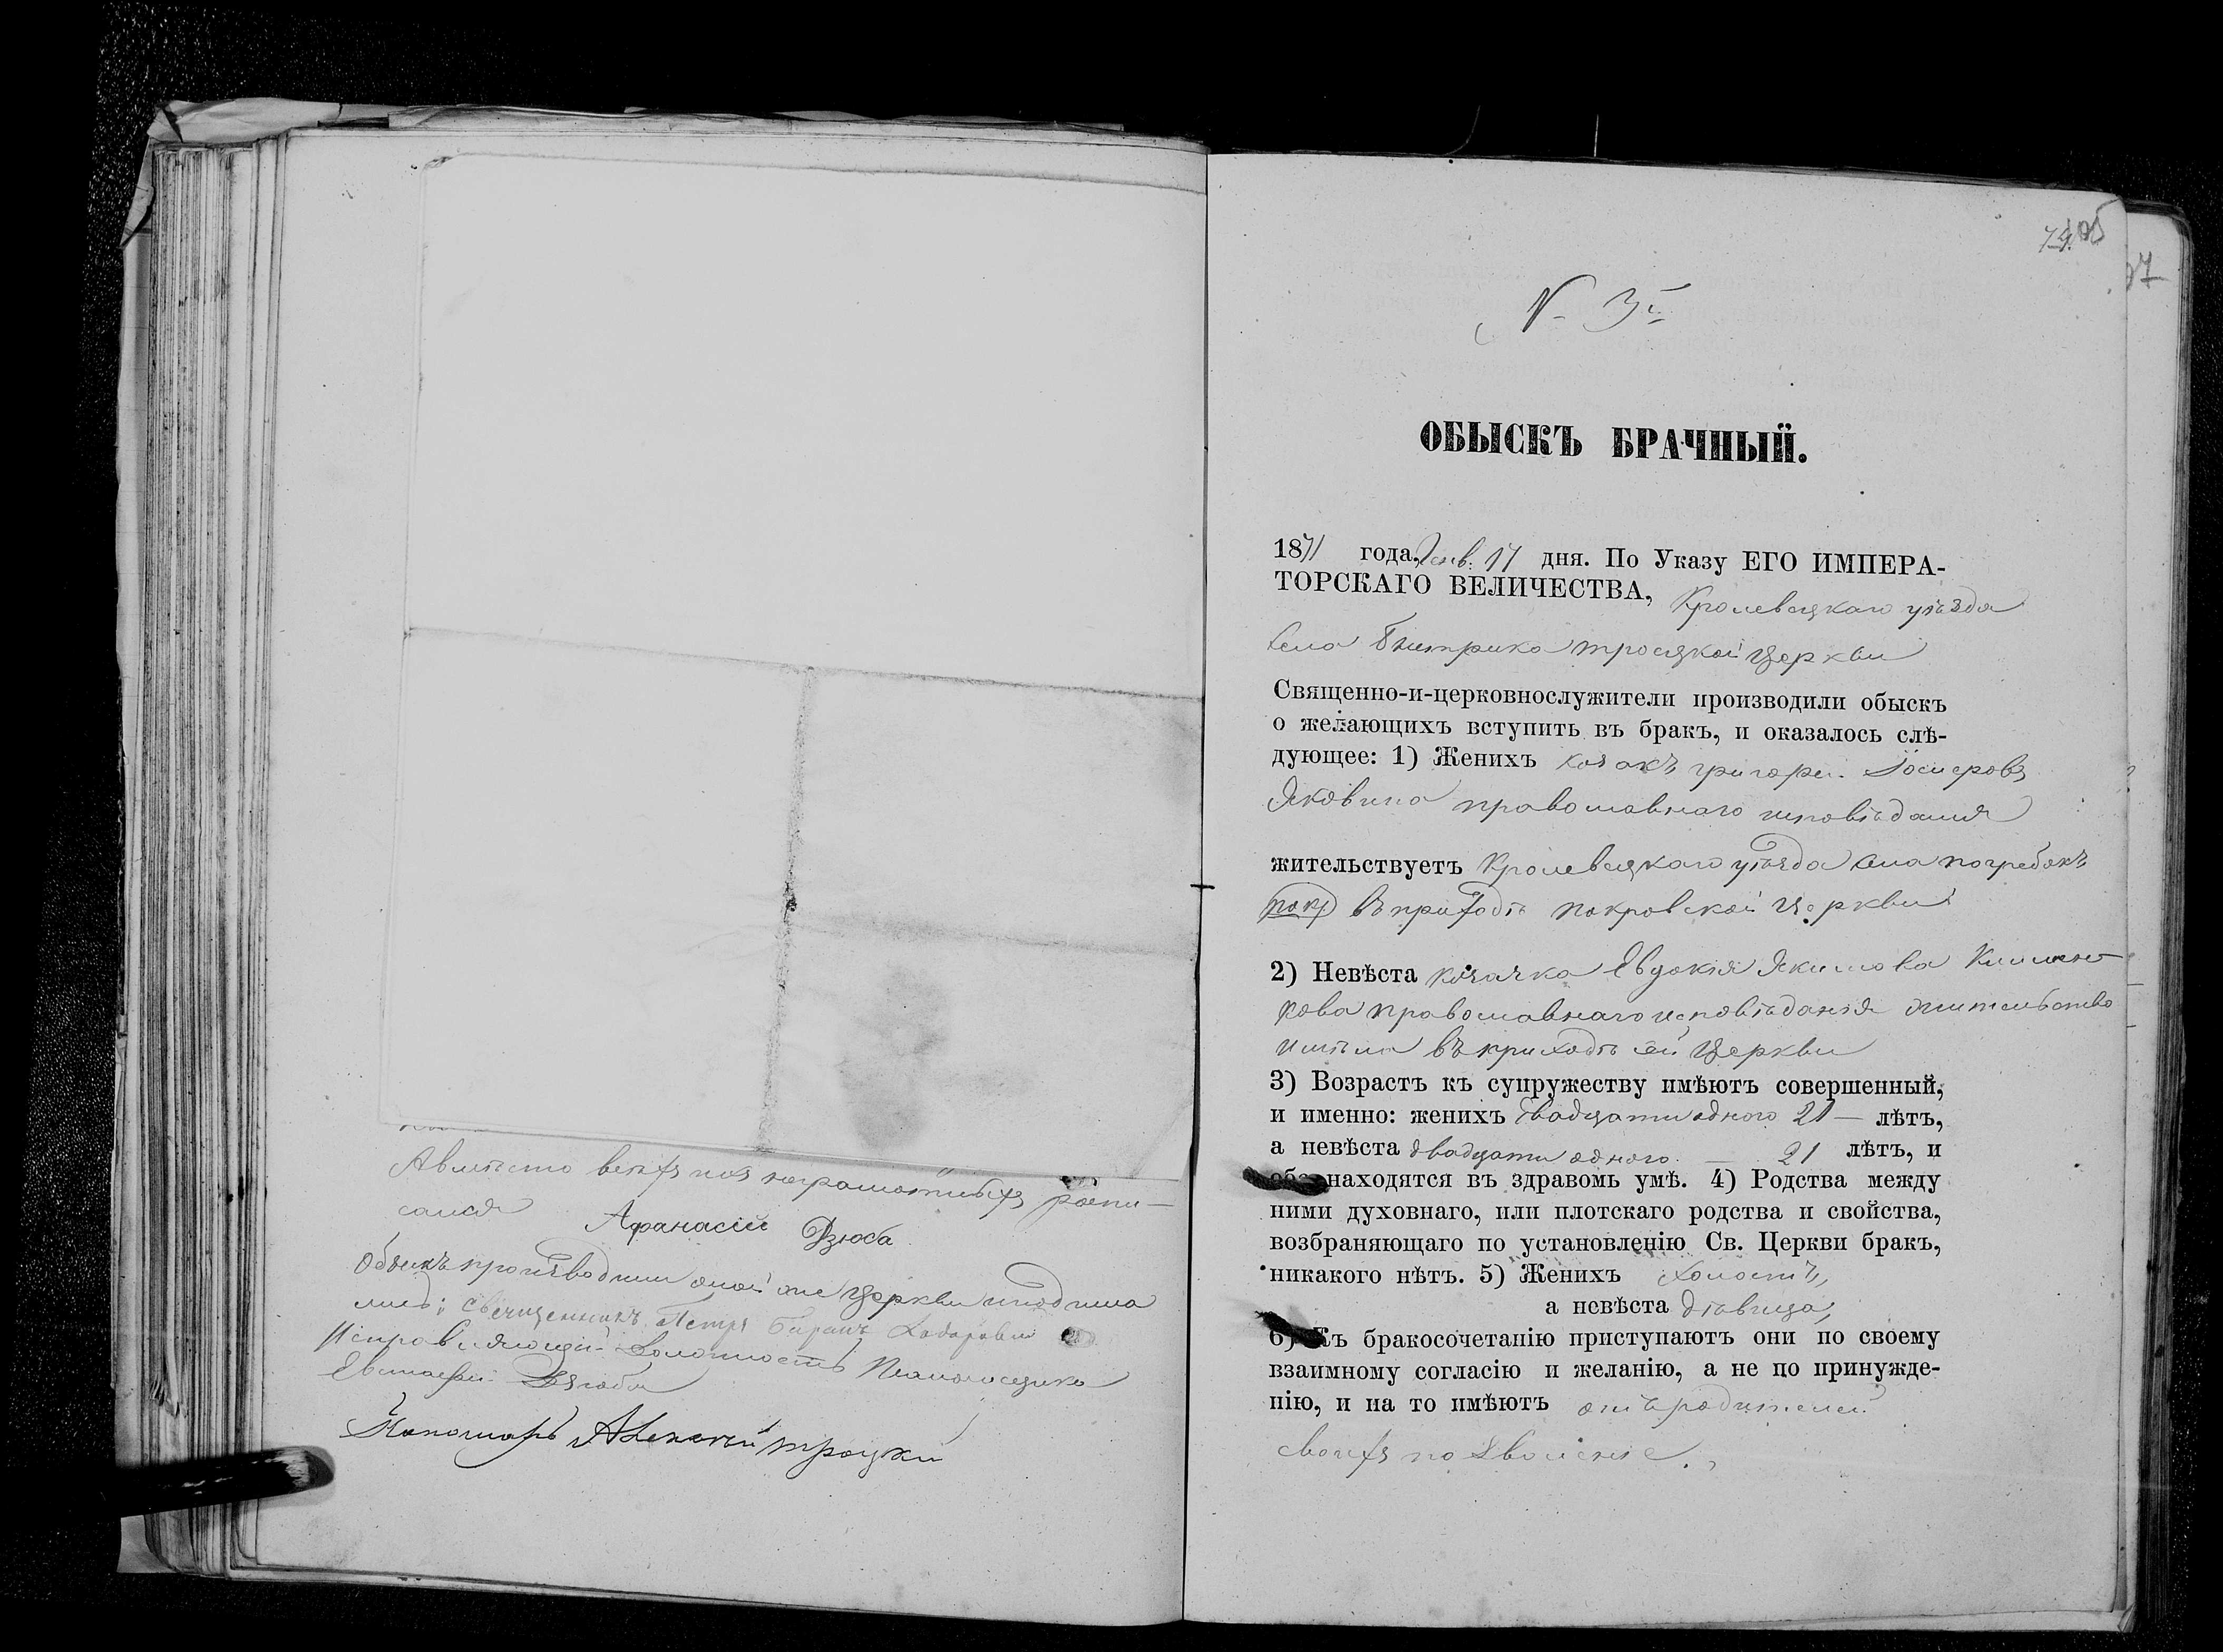 Авмѣсто всѣхъ ихъ неграмотныхъ роспи-
сался Афанасій Дзюба.
Обыскъ производили оной же Церкви
священникъ Петръ
Исправляющій должность Псаломщика
Евстафій Дзюба
Пономарь Алексѣй Троцкій
N 3й
ОБЫСКЪ БРАЧНЫЙ.
1871 года, Генв. 17 дня. По Указу ЕГО ИМПЕРА-
ТОРСКАГО ВЕЛИЧЕСТВА, Кролевецкаго уѣзда
села троецкой Церкви
Священно-и-церковнослужители производили обыскъ
о желающихъ вступить въ бракъ, и оказалось слѣ-
дующее: 1) Женихъ козакъ григорій
православнаго исповѣданія
жительствуетъ Кролевецкаго уѣзда села погребокъ
покр въ приходѣ покровской Церкви
2) Невѣста козачка Евдокія Якимова Климен-
кова православнаго исповѣданія жительство
имѣла въ приходѣ сей Церкви
3) Возрастъ къ супружеству имѣютъ совершенный,
и именно: женихъ двадцати одного 21 — лѣтъ,
а невѣста двадцати одного — 21 лѣтъ, и
оба находятся въ здравомъ умѣ. 4) Родства между
ними духовнаго, или плотскаго родства и свойства,
возбраняющаго по установленію Св. Церкви бракъ,
никакого нѣтъ. 5) Женихъ холостъ,
а невѣста дѣвица,
6) Къ бракосочетанію приступаютъ они по своему
взаимному согласію и желанію, а не по принужде-
нію, и на то имѣютъ отъ родителей
своихъ позволеніе.